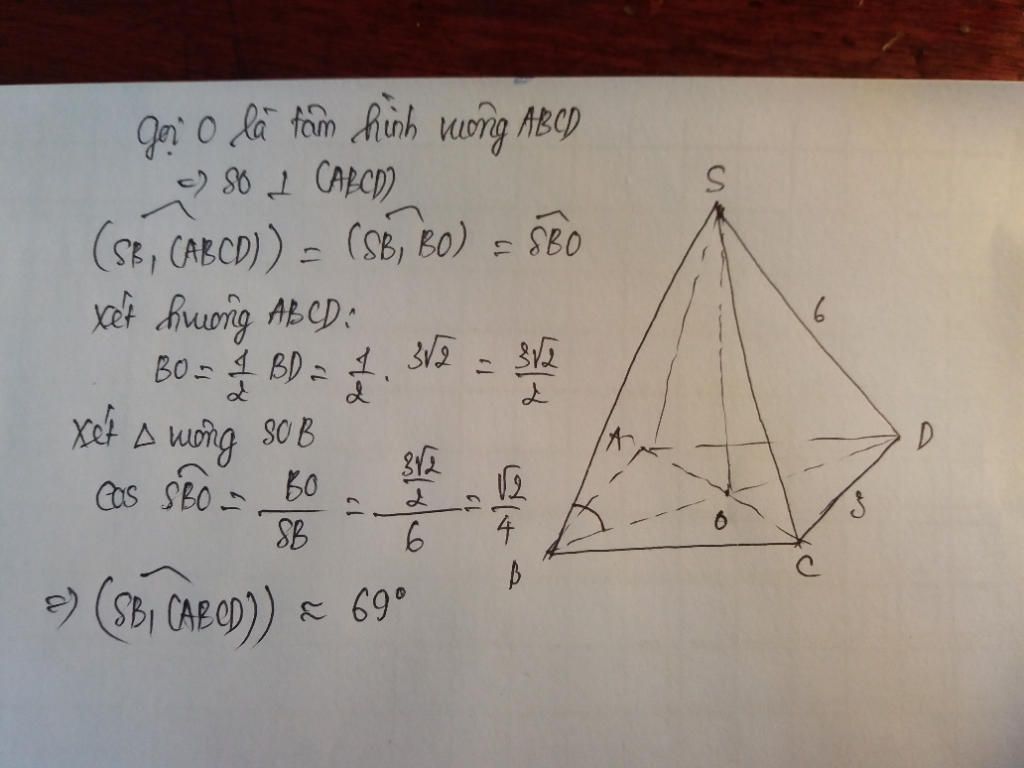 Gọi O là tâm hình vuông ABCD
=> SO ⊥ (ABCD)
(SB, (ABCD)) = (SB, BO) = SBO
Xét hvuông ABCD:
BO = 1/2 BD = 1/2 . 3√2 = 3√2/2
Xét Δ vuông SOB
Cos SBO = BO/SB = (3√2/2)/6 = √2/4
=> (SB, (ABCD)) ≈ 69°
S
6
A
D
O
3
B
C